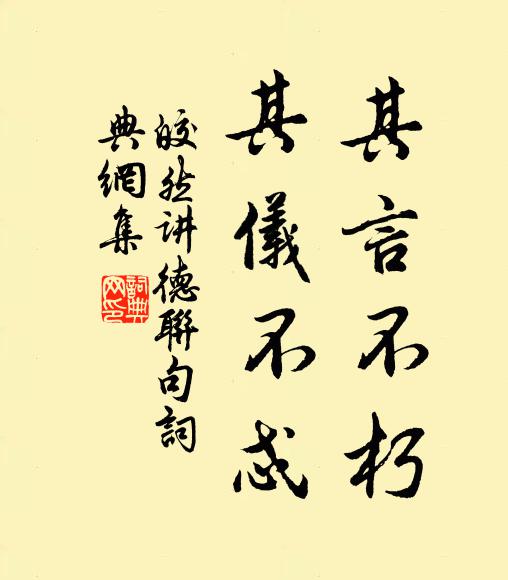 其言不朽
其儀不忒
皎然讲德聯句詞
典網集
詞典
网印